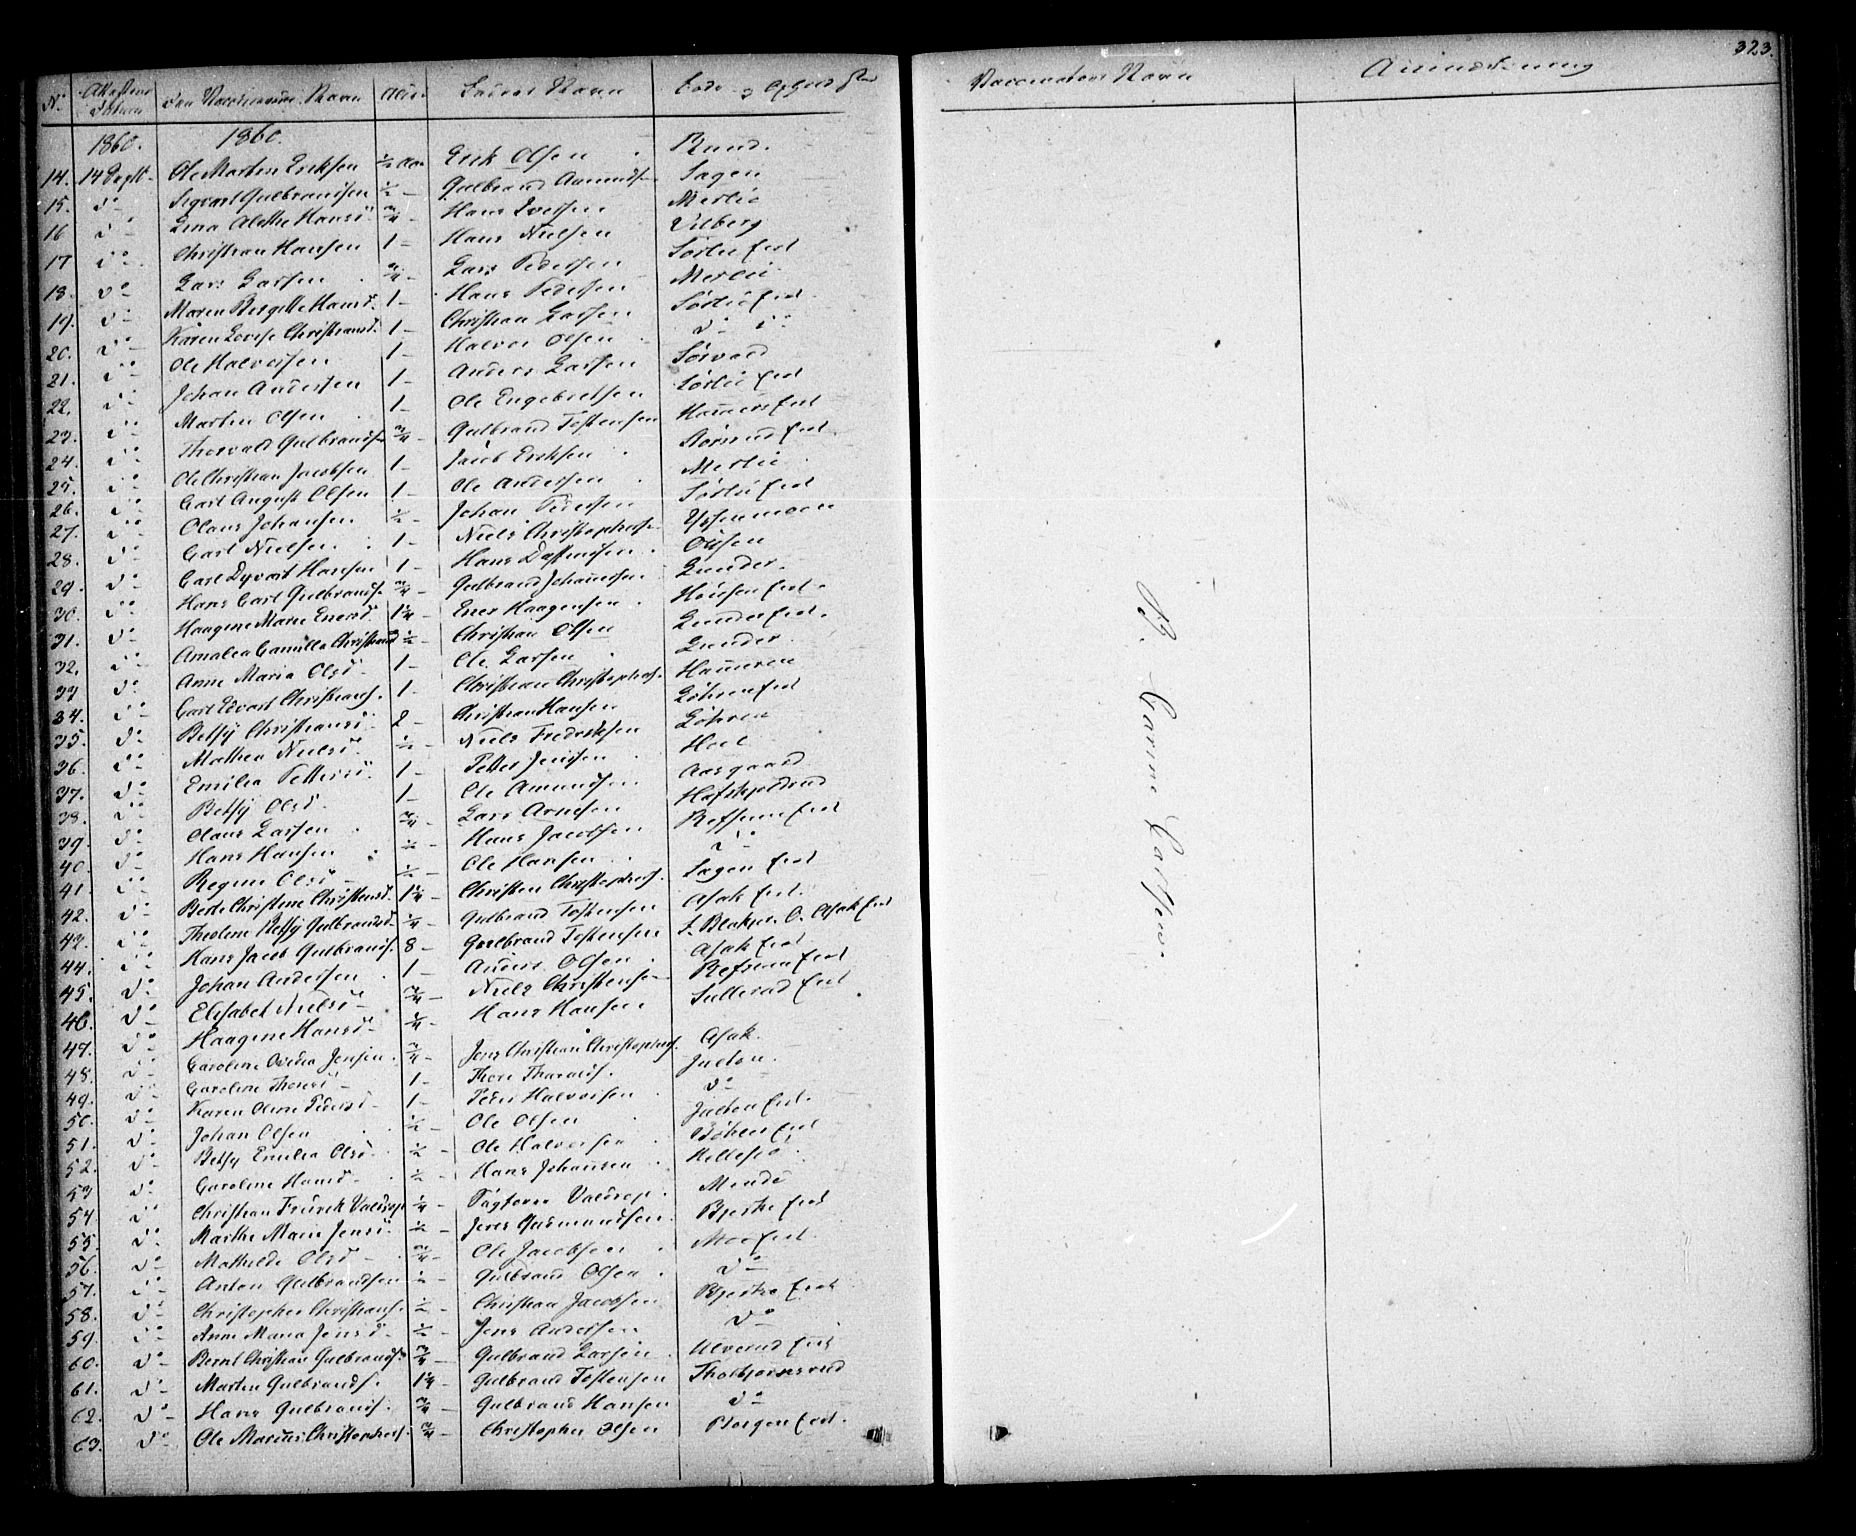 323.
No. Attestens Datum Den Vaccineredes Navn Alder Faders Navn
Vaccinateurs Navn Anmærkning
1860. 1860.
14. 14 Septb. Ole Martin Eriksen ½ Aar Erik Olsen Ruud.
15. do Sigvart Gulbrandsen ½ - Gulbrand Amunds. Hagen
16 do Lena Alethe Hansd. ¾ - Hans Iversen Merlie
17 do Christian Hansen 1 - Hans Nielsen Vilberg
18. do Lars Larsen ¾ - Lars Pedersen Sørlie Eiet
19. do Maren Bergitte Hansd. 1 - Hans Pedersen Merlie
20. do Karen Lovise Christiansd. 1 - Christian Larsen Sørlie Eiet
21. do Ole Halvorsen 1 - Halvor Olsen do do
22. do Johan Andersen 1 - Anders Larsen Sørvald
23. do Martin Olsen 1 - Ole Engebretsen Sørlie Eiet
24. do Thorvald Gulbrands. ¾ - Gulbrand Tostensen Hammeren Eiet
25. do Ole Christian Jacobsen 1 - Jacob Eriksen Eiet.
26. do Carl August Olsen 1 - Ole Andersen Merlie
27. do Olaus Johansen ½ - Johan Pedersen Sørlie Eiet
28. do Carl Nielsen 1 - Niels Christophers.
29. do Carl Dyvart Hansen 1 - Hans
30. do Hans Carl Gulbrands. ¾ - Gulbrand Johannesen Lunder.
31. do Haagine Marie Enersd. 1¼ - Ener Haagensen Eiet.
32. do Amalea Camilla Christiansd. ½ - Christian Olsen Lunder Eiet.
33 do Anne Maria Olsd. 1 - Ole Larsen Lunder
34. do Carl Edvart Christians. 1 - Christian Christophers. Hammeren
35. do Betsy Christiansd. 2 - Christian Hansen Løhren Eiet
36. do Mathea Nielsd. ½ - Niels Fredriksen Løhren
37. do Emilie Pettersd. 1 - Petter Jensen Hoel
38. do Betsy Olsd. 1 - Ole Amundsen Aasgaard
39. do Olaus Larsen ¾ - Lars Arnesen
40. do Hans Hansen ½ - Hans Jacobsen Refsum Eiet
41. do Regine Olsd. ½ - Ole Hansen do
42. do Berte Christine Christensd. 1¼ - Christen Christophers. Hagen Eiet
43. do Theoline Betsy Gulbrandsd. ¼ - Gulbrand Tostensen Asak Eiet.
44. do Hans Jacob Gulbrands. 8 - Gulbrand Tostensen Asak Eiet
45. do Johan Andersen 1 - Anders Olsen Asak Eiet
46. do Elisabet Nielsd. ¾ - Niels Christensen Refsum Eiet
47. do Haagine Hansd. ¼ - Hans Hansen Sullerud Eiet
48. do Caroline Ovidia Jensen ¾ - Jens Christian Christophers. Asak.
49. do Caroline Thoresd. 1 - Thore Jueton.
50. do Karen Oline Pedersd. 1 - Peder Halvorsen do
51. do Johan Olsen ½ - Ole Olsen Jueton Eiet.
52. do Betsy Emilia Olsd. ½ - Ole Halvorsen Bøhler Eiet
53 do Caroline Hansd. ½ - Hans Johansen
54. do Christian Fredrik Valdrop ¼ - Valdrop.
55. do Marthe Marie Jensd. ½ - Jens Gudmundsen Bjerke Eiet
56. do Mathilde Olsd. ¾ - Ole Jacobsen Moe Eiet.
57. do Anton Gulbrandsen ½ - Gulbrand Olsen do
58. do Christopher Christians. ½ - Christian Jacobsen Bjerke Eiet
59. do Anne Maria Jensd. ½ - Jens Andersen do
60. do Bernt Christian Gulbrands. ¾ - Gulbrand Larsen Ulverud Eiet
61. do Martin Gulbrands. 1¼ - Gulbrand Tostensen Thorbjørnsrud
62. do Hans Gulbrands. ¾ - Gulbrand Hansen do
63. do Ole Marius Christophers. ¾ - Christopher Olsen Borgen Eiet.